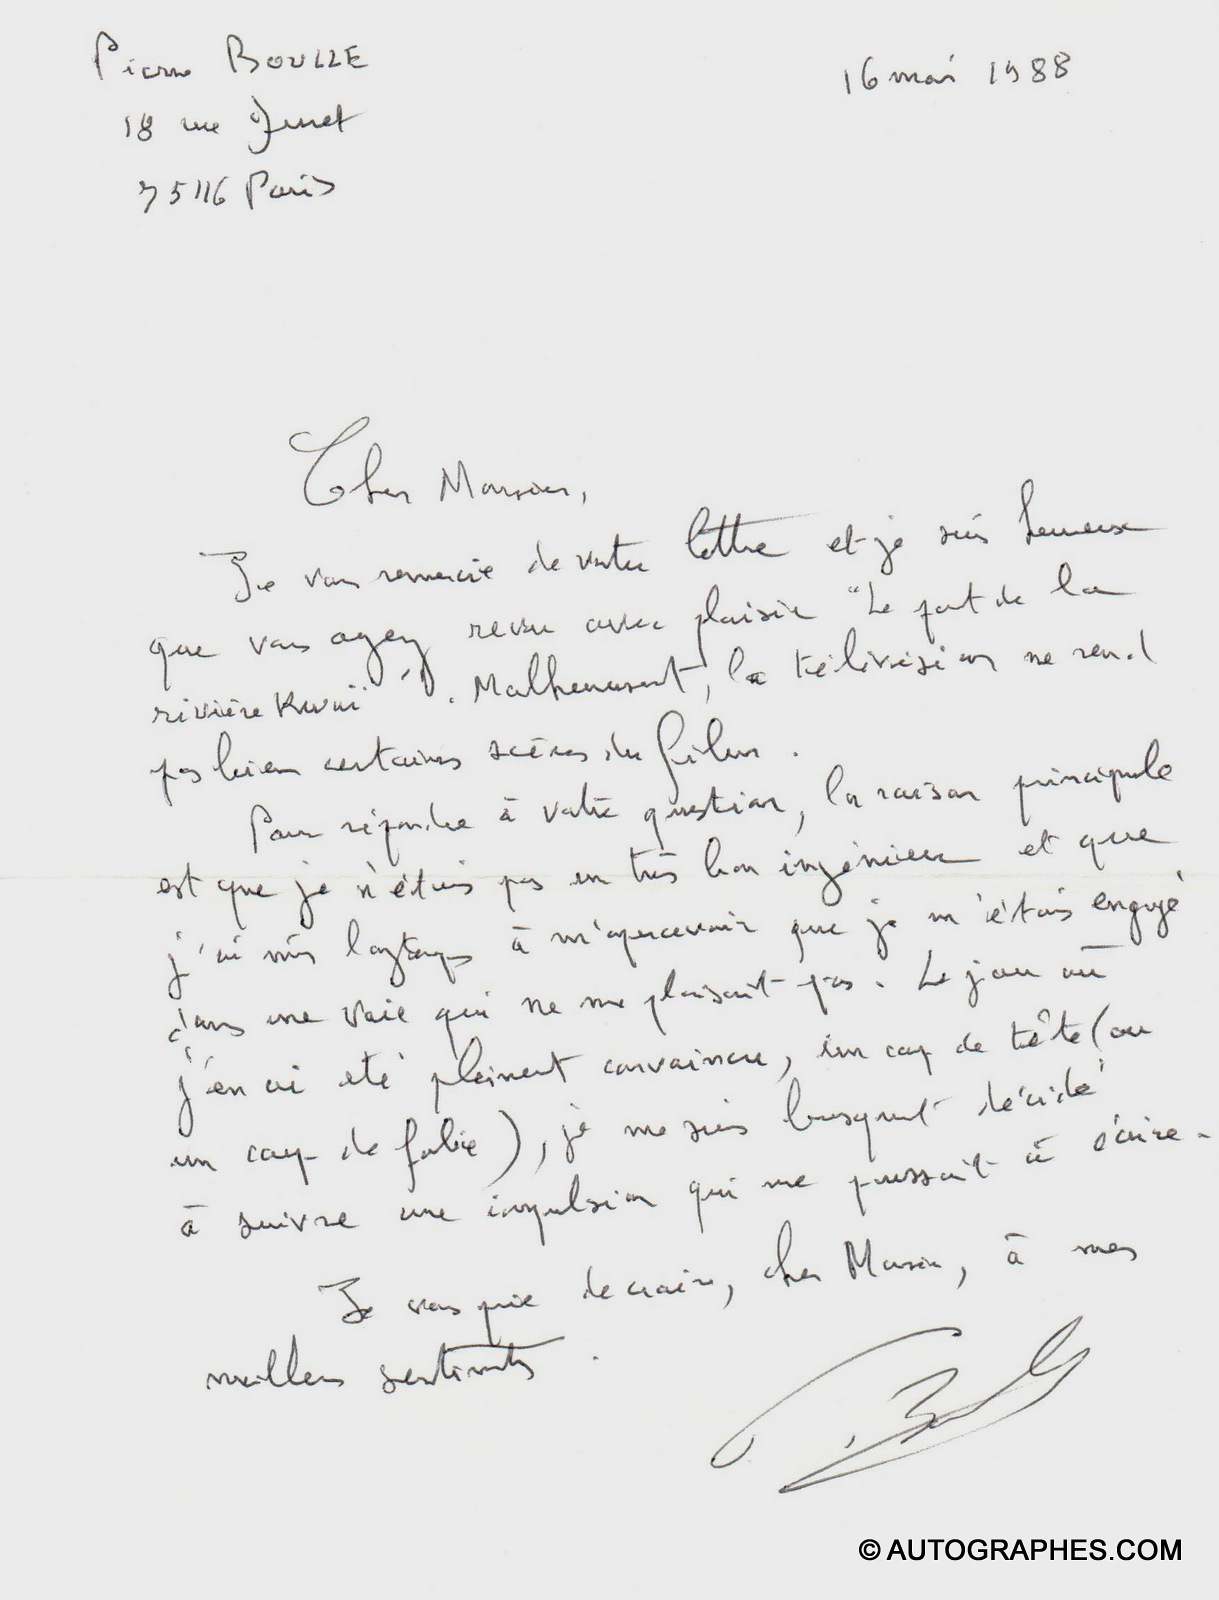 Pierre BOULLE
16 mai 1988
18 rue Duret
75116 Paris
Cher Monsieur,
Je vous remercie de votre lettre et je suis heureux
que vous ayez revu avec plaisir "Le pont de la
rivière Kwaï". Malheureusement, la télévision ne rend
pas bien certaines scènes du film.
Pour répondre à votre question, la raison principale
est que je n'étais pas un très bon ingénieur et que
j'ai mis longtemps à m'apercevoir que je m'étais engagé
dans une voie qui ne me plaisait pas. Le jour où
j'en ai été pleinement convaincu, sur un coup de tête (ou
un coup de folie), je me suis brusquement décidé
à suivre une impulsion qui me poussait à écrire.
Je vous prie de croire, cher Monsieur, à mes
meilleurs sentiments.
P. Boulle
© AUTOGRAPHES.COM